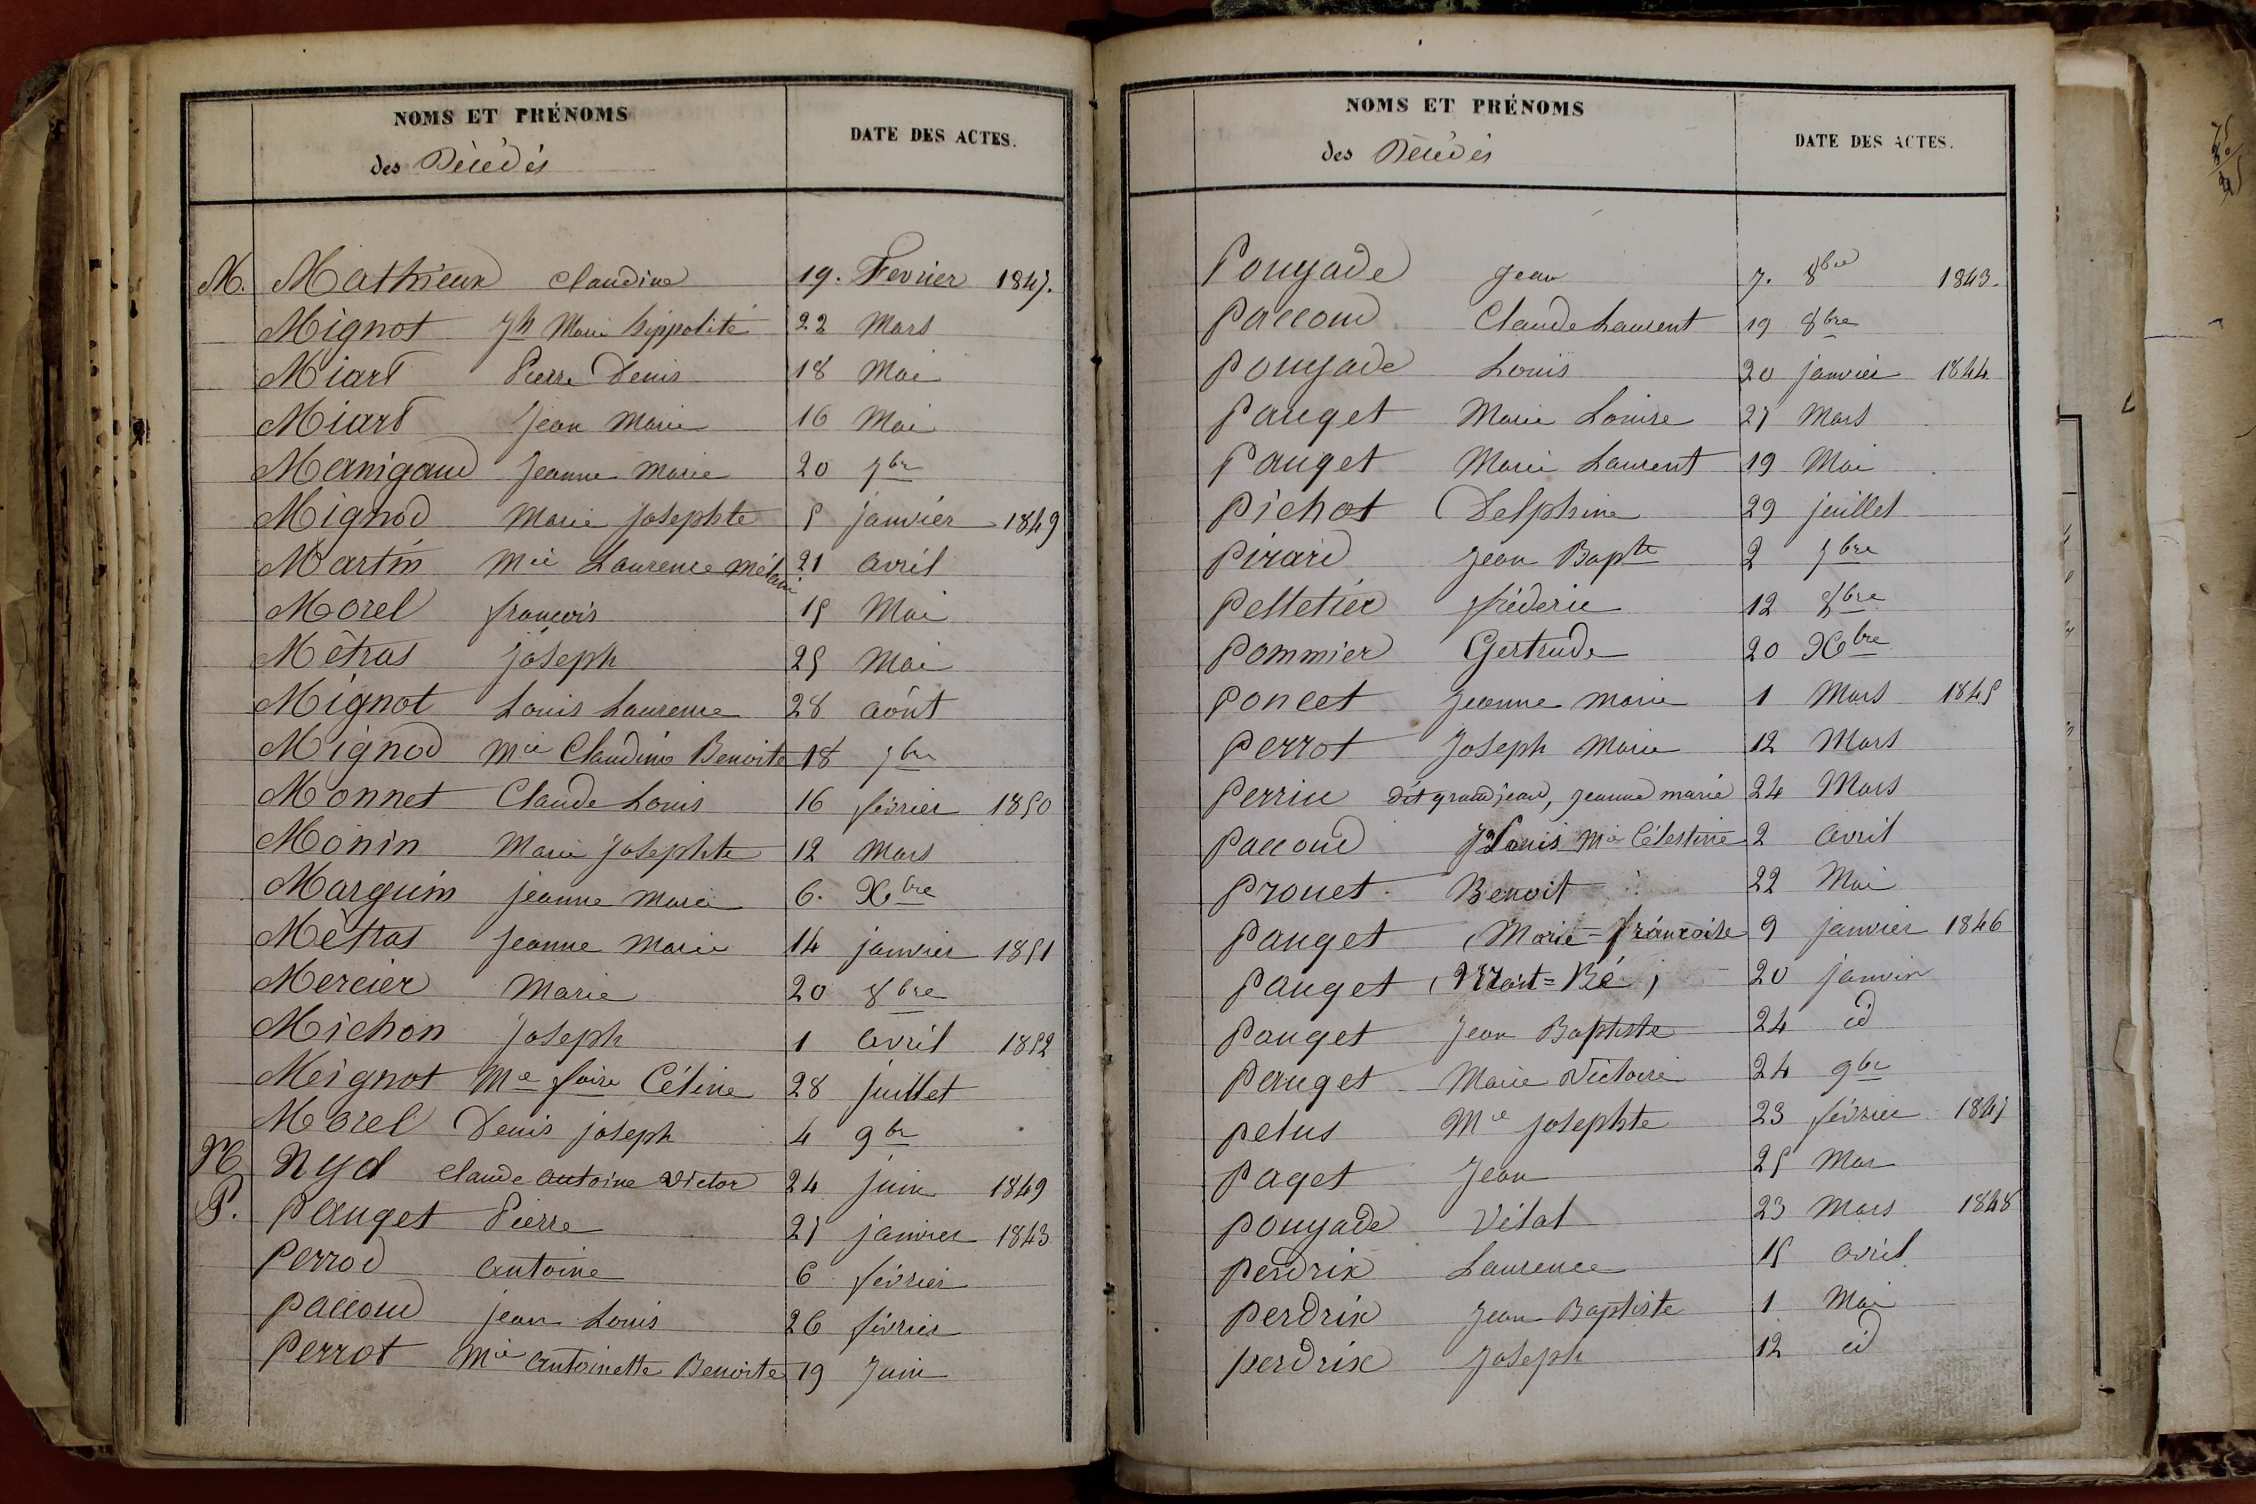 NOMS ET PRÉNOMS
des Décédés
DATE DES ACTES.
M. Mathieux Claudine 19. Fevrier 1847.
Mignot Jh Marie hippolite 22 Mars
Miart Pierre Denis 18 Mai
Miart Jean Marie 16 Mai
Manigaud Jeanne Marie 20 7bre
Mignod Marie Josephte 5 janvier 1849
Martin Mie Laurence Mélanie 21 avril
Morel françois 15 Mai
Mêtras Joseph 25 Mai
Mignot Louis Laurence 28 août
Mignod Mie Claudine Benoite 18 7bre
Monnet Claude Louis 16 février 1850
Monin Marie Josephte 12 Mars
Marguin jeanne Marie 6. Xbre
Mêtras Jeanne Marie 14 janvier 1851
Mercier Marie 20 8bre
Michon Joseph 1 avril 1852
Meignot Me foise Céline 28 juillet
Morel Denis joseph 4 9bre
N Nyd Claude antoine Victor 24 juin 1849
P. Pauget Pierre 27 janvier 1843
Perrod antoine 6 février
Paccoud jean Louis 26 février
Perrot Mie antoinette Benoite 19 Juin
NOMS ET PRÉNOMS
des Décédés
DATE DES ACTES.
Pouyade Jean 7. 8bre 1843.
Paccoud Claude Laurent 19 8bre
Pouyade Louis 20 janvier 1844
Pauget Marie Louise 27 Mars
Pauget Marie Laurent 19 Mai
Pichot Delphine 29 juillet
Pirard Jean Bapte 2 7bre
Pelletier fréderic 12 8bre
Pommier Gertrude 20 Xbre
Poncet Jeanne Marie 1 Mars 1845
Perrot Joseph Marie 12 Mars
Perrin dit grandjean, Jeanne marie 24 Mars
Paccoud Louis Mie Célestine 2 avril
Prouet Benoit 22 Mai
Pauget (Marie=françoise 9 janvier 1846
Pauget (Mort=Né) 20 janvier
Pauget Jean Baptiste 24 id
Pauget Marie Victoire 24 9bre
Pelus Mie Josephte 23 février 1847
Paget Jean 25 Mai
Pouyade Vétal 23 Mars 1848
Perdrix Laurence 15 avril
Perdrix Jean Baptiste 1 Mai
Perdrix Joseph 12 id